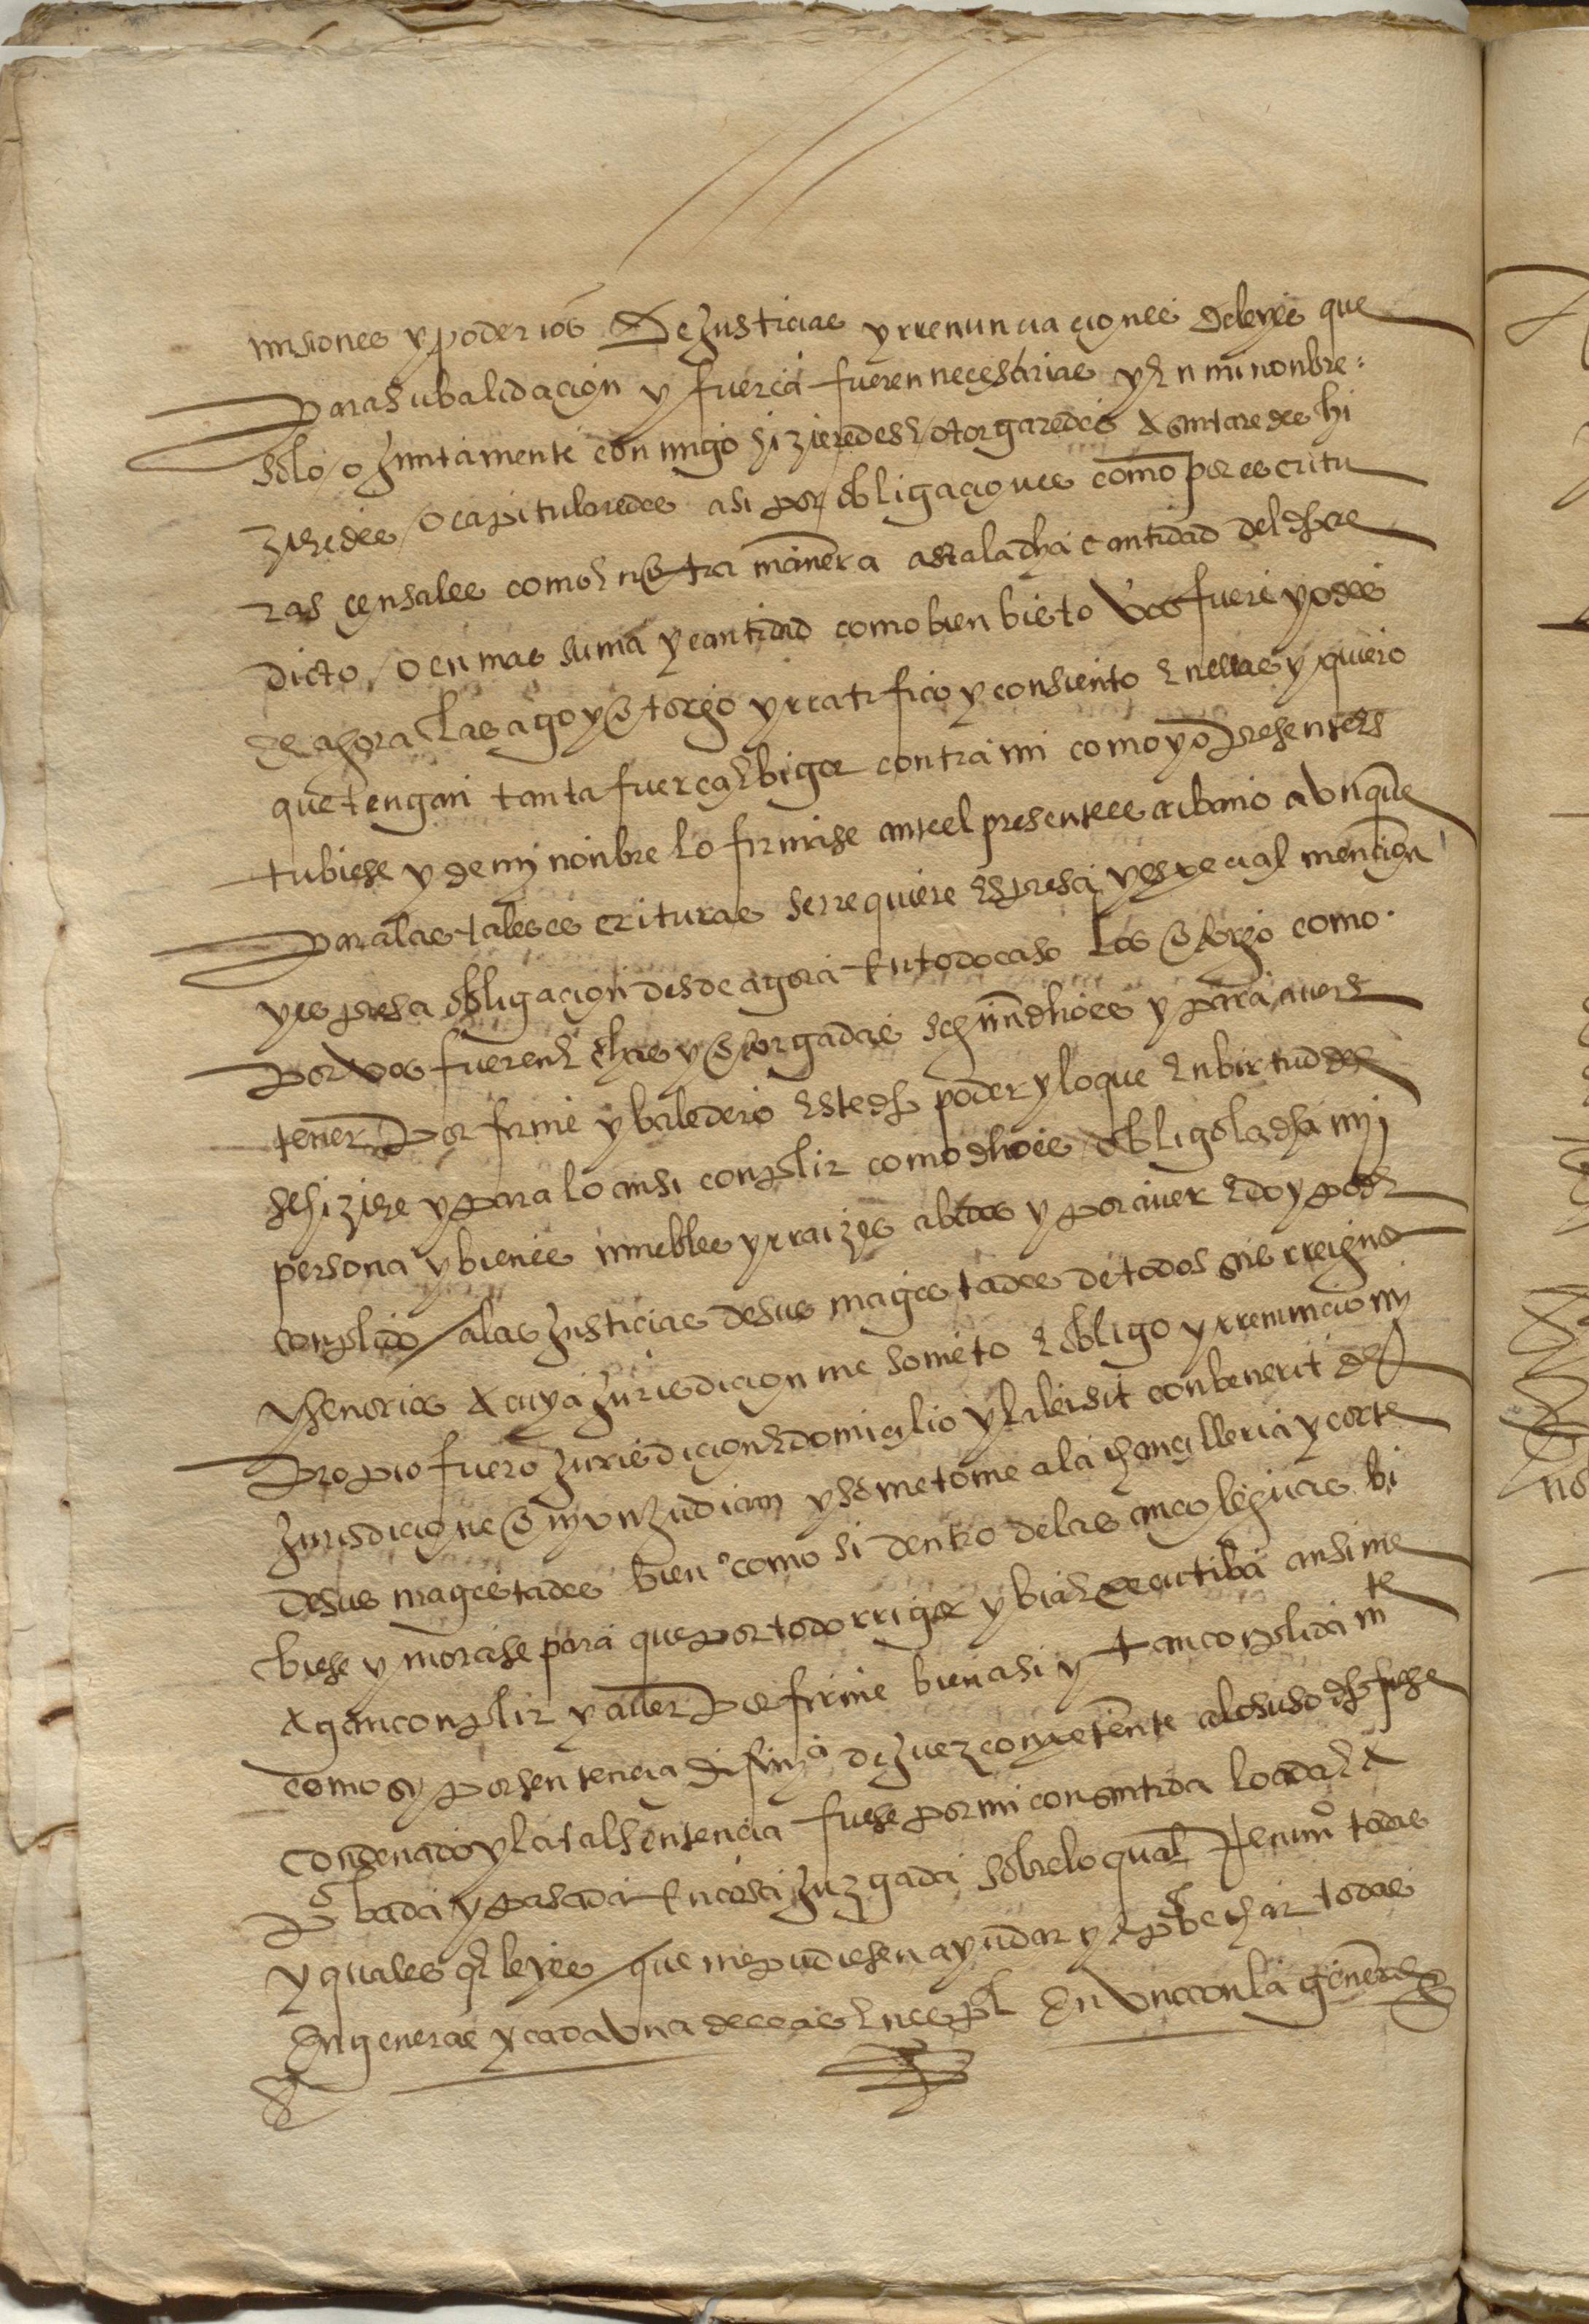 misiones y poderios De Justicias y rrenunciaciones de leyes que
para su balidacion y fuerça fueren necesarias y en mi nonbre
solo / o juntamente con migo hizieredes e otorgaredes asentaredes hi
zieredes / o capitularedes asi por obligaciones como por escritu
ras censales como en otra manera asta la dha cantidad del dho cre
dicto / o en mas suma y cantidad como bien bisto bos fuere yo des
de agora las ago y otorgo y rratifico y consiento en ellas y quiero
que tengan tanta fuerça e bigor contra mi como yo presente es
tubiese y de mi nonbre lo firmase ante el presente escribano avnque
para las tales escrituras se rrequiere espresa y especial mencion
y espresa obligacion desde agora en todo caso las otorgo como
por vos fueren echas y otorgadas segun dho es y para aver e
tener por firme y baledero este dho poder y lo que en birtud del
se hiziere y para lo ansi conplir como dho es / obligo la dha mi
persona y bienes muebles y rraizes abidos y por aver e doy poder
conplido / a las Justicias de sus magestades de todos sus rreignos
y señorios a cuya Jurisdicion me someto e obligo y rrenuncio mi
propio fuero Jurisdicion e domicilio y la lei sit conbenerit de
Jurisdicione oniun Judicun y sometome a la chancilleria y corte
de sus magestades bien como si dentro de las cinco leguas bi
biese y morase para que por todo rrigor y bia executiba ansi me
agan conplir y aver por firme bien asi y tan conplidamte
como si por sentencia difinitiba de Juez conpetente a lo suso dho fuese
condenado y la tal sentencia fuese por mi consentida loada e a
probada y pasada en cosa Juzgada sobre lo qual Renunº todas
y quales qr leyes que me pudiesen ayudar y aprobechar todas
en general y cada vna dellas en espl en vno con la general